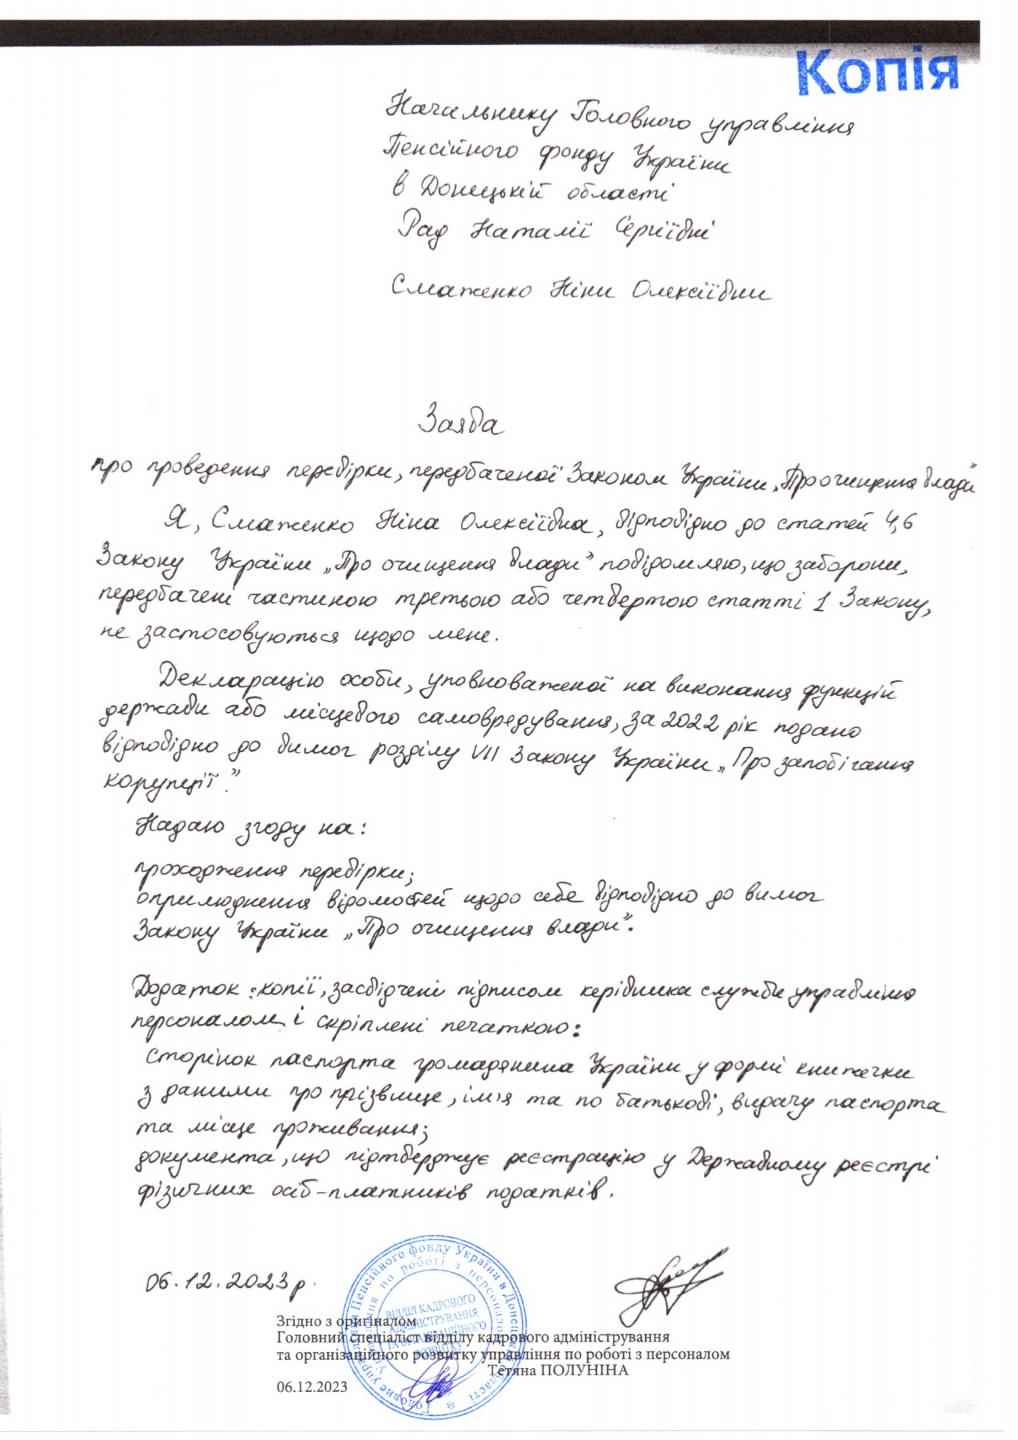 Копія
Начальнику Головного управління
Пенсійного фонду України
в Донецькій області
Рад Наталії Сергіївні
Смаженко Ніни Олексіївни
Заява
про проведення перевірки, передбаченої Законом України „Про очищення влади"
Я, Смаженко Ніна Олексіївна, відповідно до статей 4,6
Закону України „Про очищення влади" повідомляю, що заборони,
передбачені частиною третьою або четвертою статті 1 Закону,
не застосовуються щодо мене.
Декларацію особи, уповноваженої на виконання функцій
держави або місцевого самоврядування, за 2022 рік подано
відповідно до вимог розділу VII Закону України „Про запобігання
корупції".
Надаю згоду на:
проходження перевірки;
оприлюднення відомостей щодо себе відповідно до вимог
Закону України „Про очищення влади".
Додаток: копії, засвідчені підписом керівника служби управління
персоналом і скріплені печаткою:
сторінок паспорта громадянина України у формі книжечки
з даними про прізвище, ім'я та по батькові, видачу паспорта
та місце проживання;
документа, що підтверджує реєстрацію у Державному реєстрі
фізичних осіб-платників податків.
06.12.2023 р.
Головне управління Пенсійного фонду України в Донецькій області
Управління по роботі з персоналом
ВІДДІЛ КАДРОВОГО
АДМІНІСТРУВАННЯ
ТА ОРГАНІЗАЦІЙНОГО
РОЗВИТКУ
Згідно з оригіналом
Головний спеціаліст відділу кадрового адміністрування
та організаційного розвитку управління по роботі з персоналом
Тетяна ПОЛУНІНА
06.12.2023